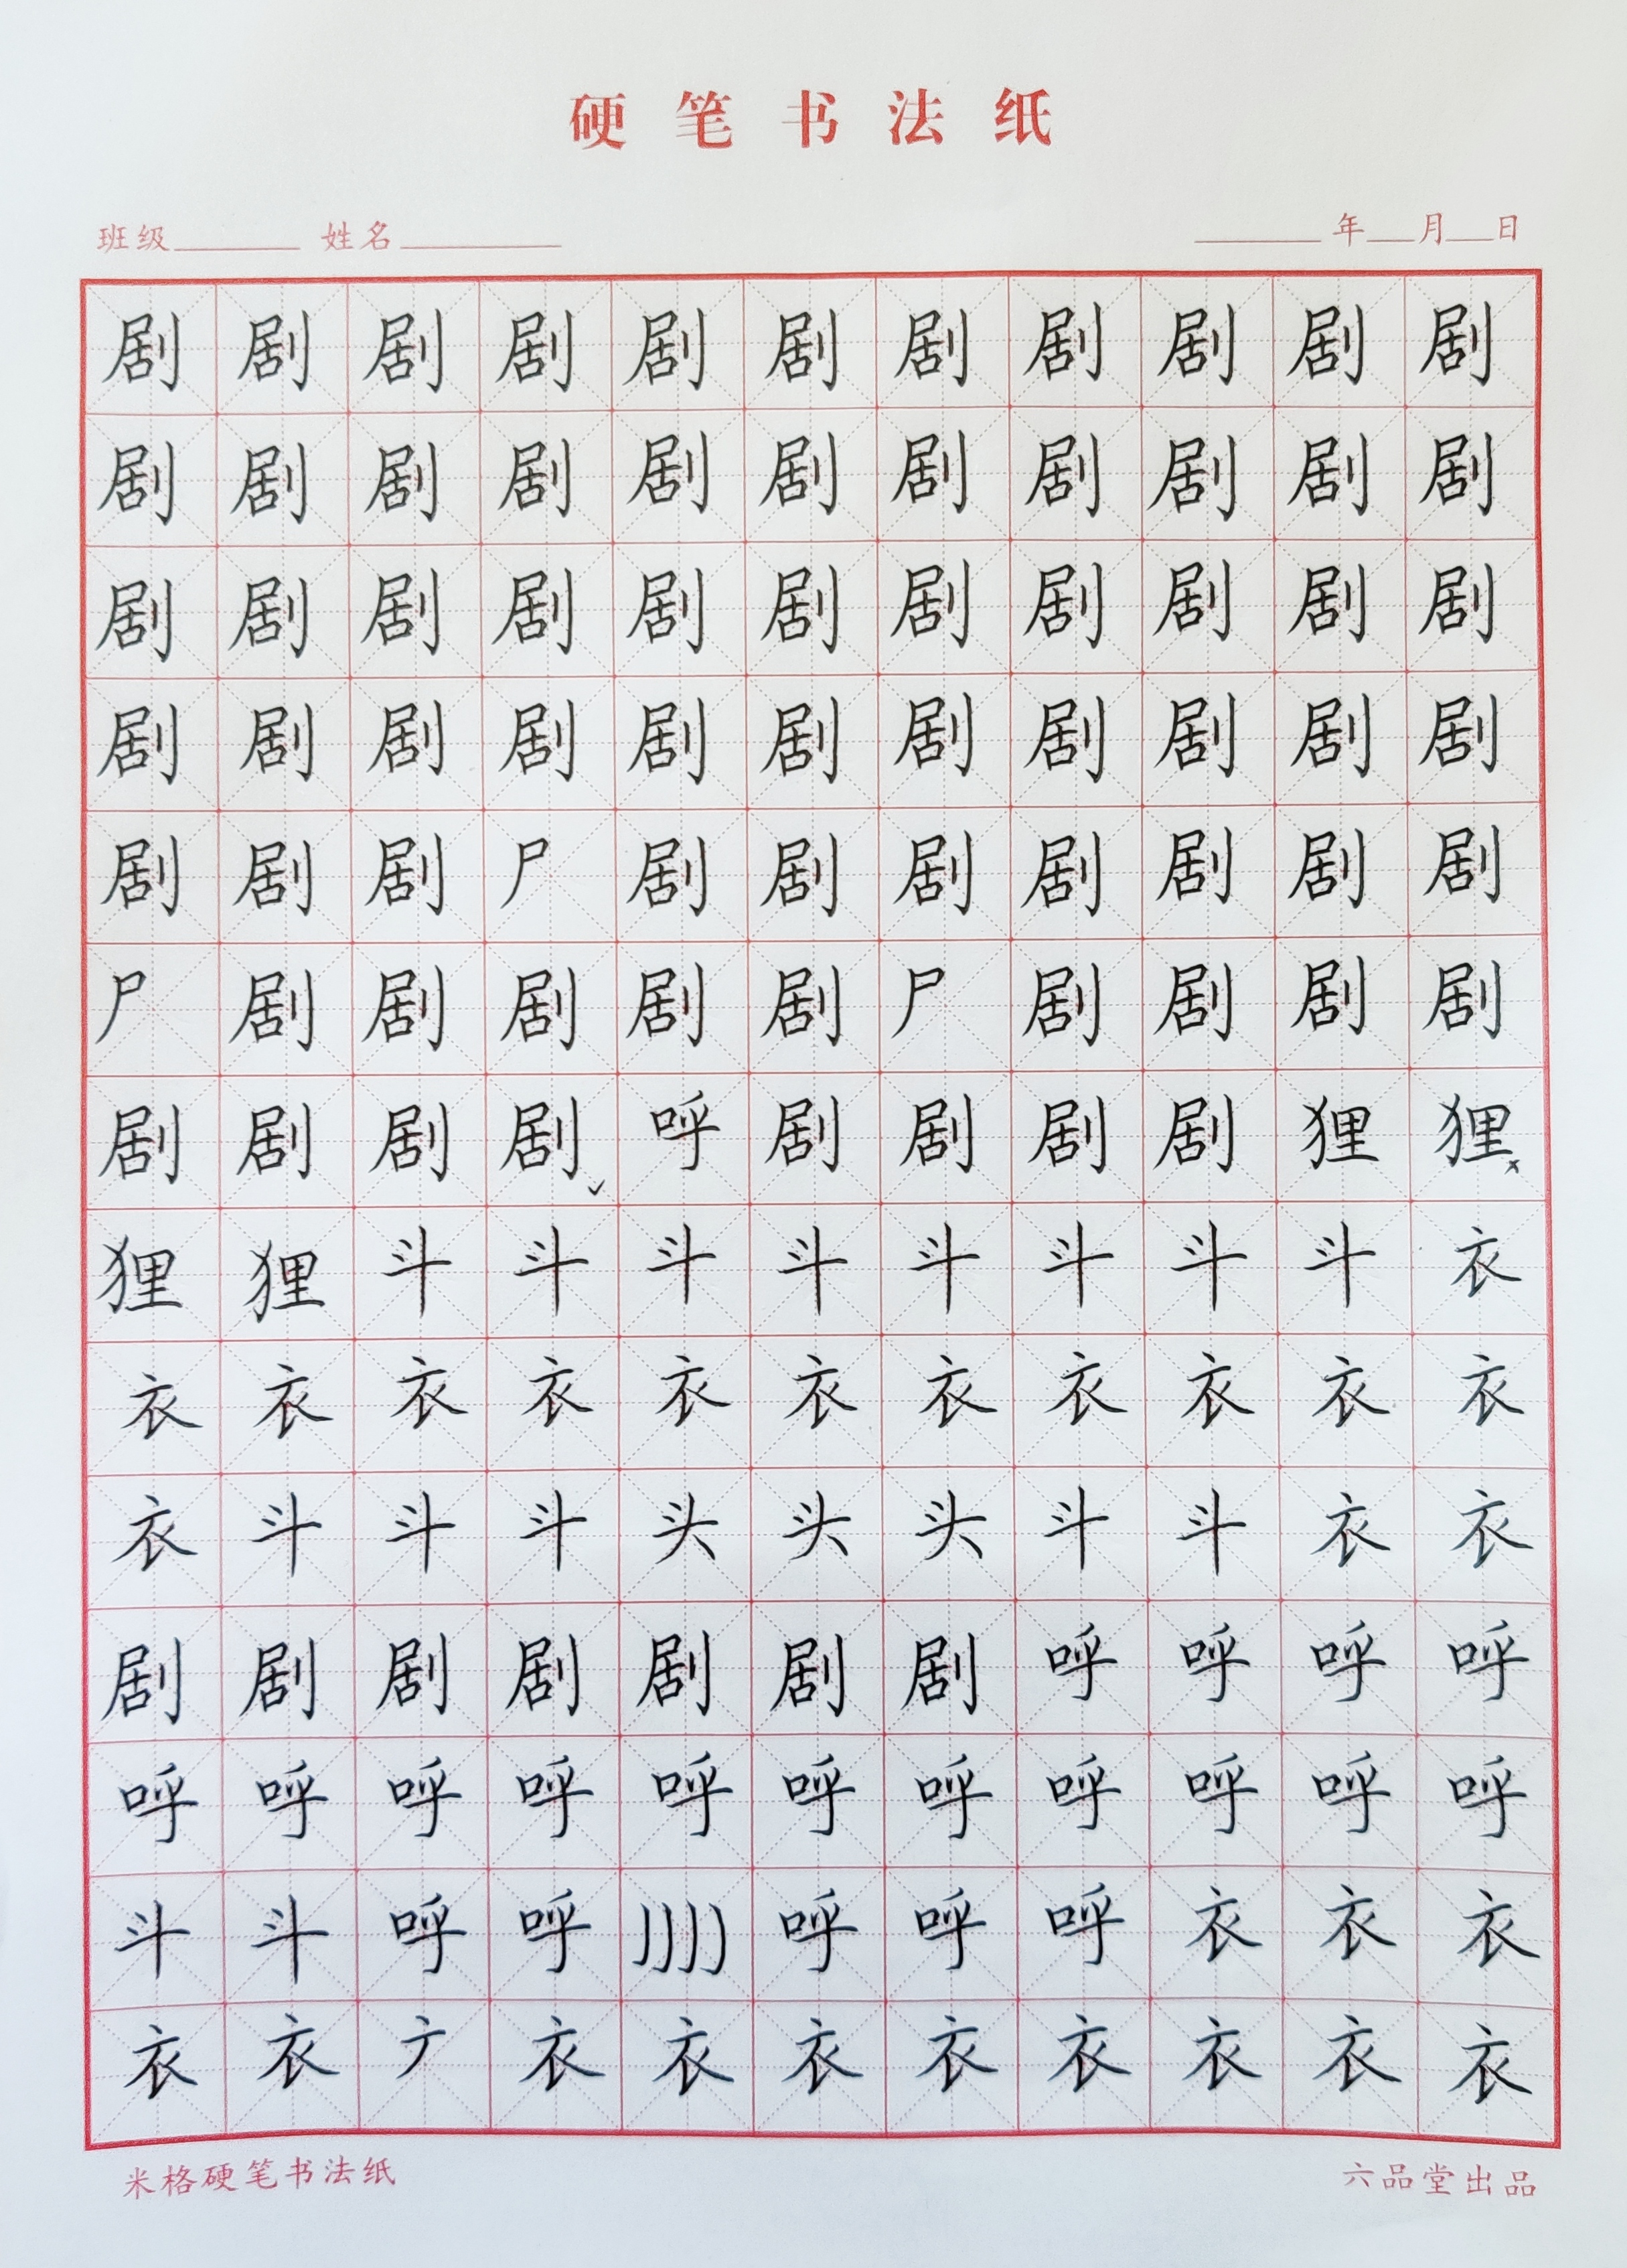 硬笔书法纸
班级 姓名 年 月 日
剧剧剧剧剧剧剧剧剧剧剧
剧剧剧剧剧剧剧剧剧剧剧
剧剧剧剧剧剧剧剧剧剧剧
剧剧剧剧剧剧剧剧剧剧剧
剧剧剧尸剧剧剧剧剧剧剧
尸剧剧剧剧剧尸剧剧剧剧
剧剧剧剧✓呼剧剧剧剧狸狸×
狸狸斗斗斗斗斗斗斗斗衣
衣衣衣衣衣衣衣衣衣衣衣
衣斗斗斗头头头斗斗衣衣
剧剧剧剧剧剧剧呼呼呼呼
呼呼呼呼呼呼呼呼呼呼呼
斗斗呼呼呼呼呼衣衣衣
衣衣衣衣衣衣衣衣衣衣
米格硬笔书法纸 六品堂出品